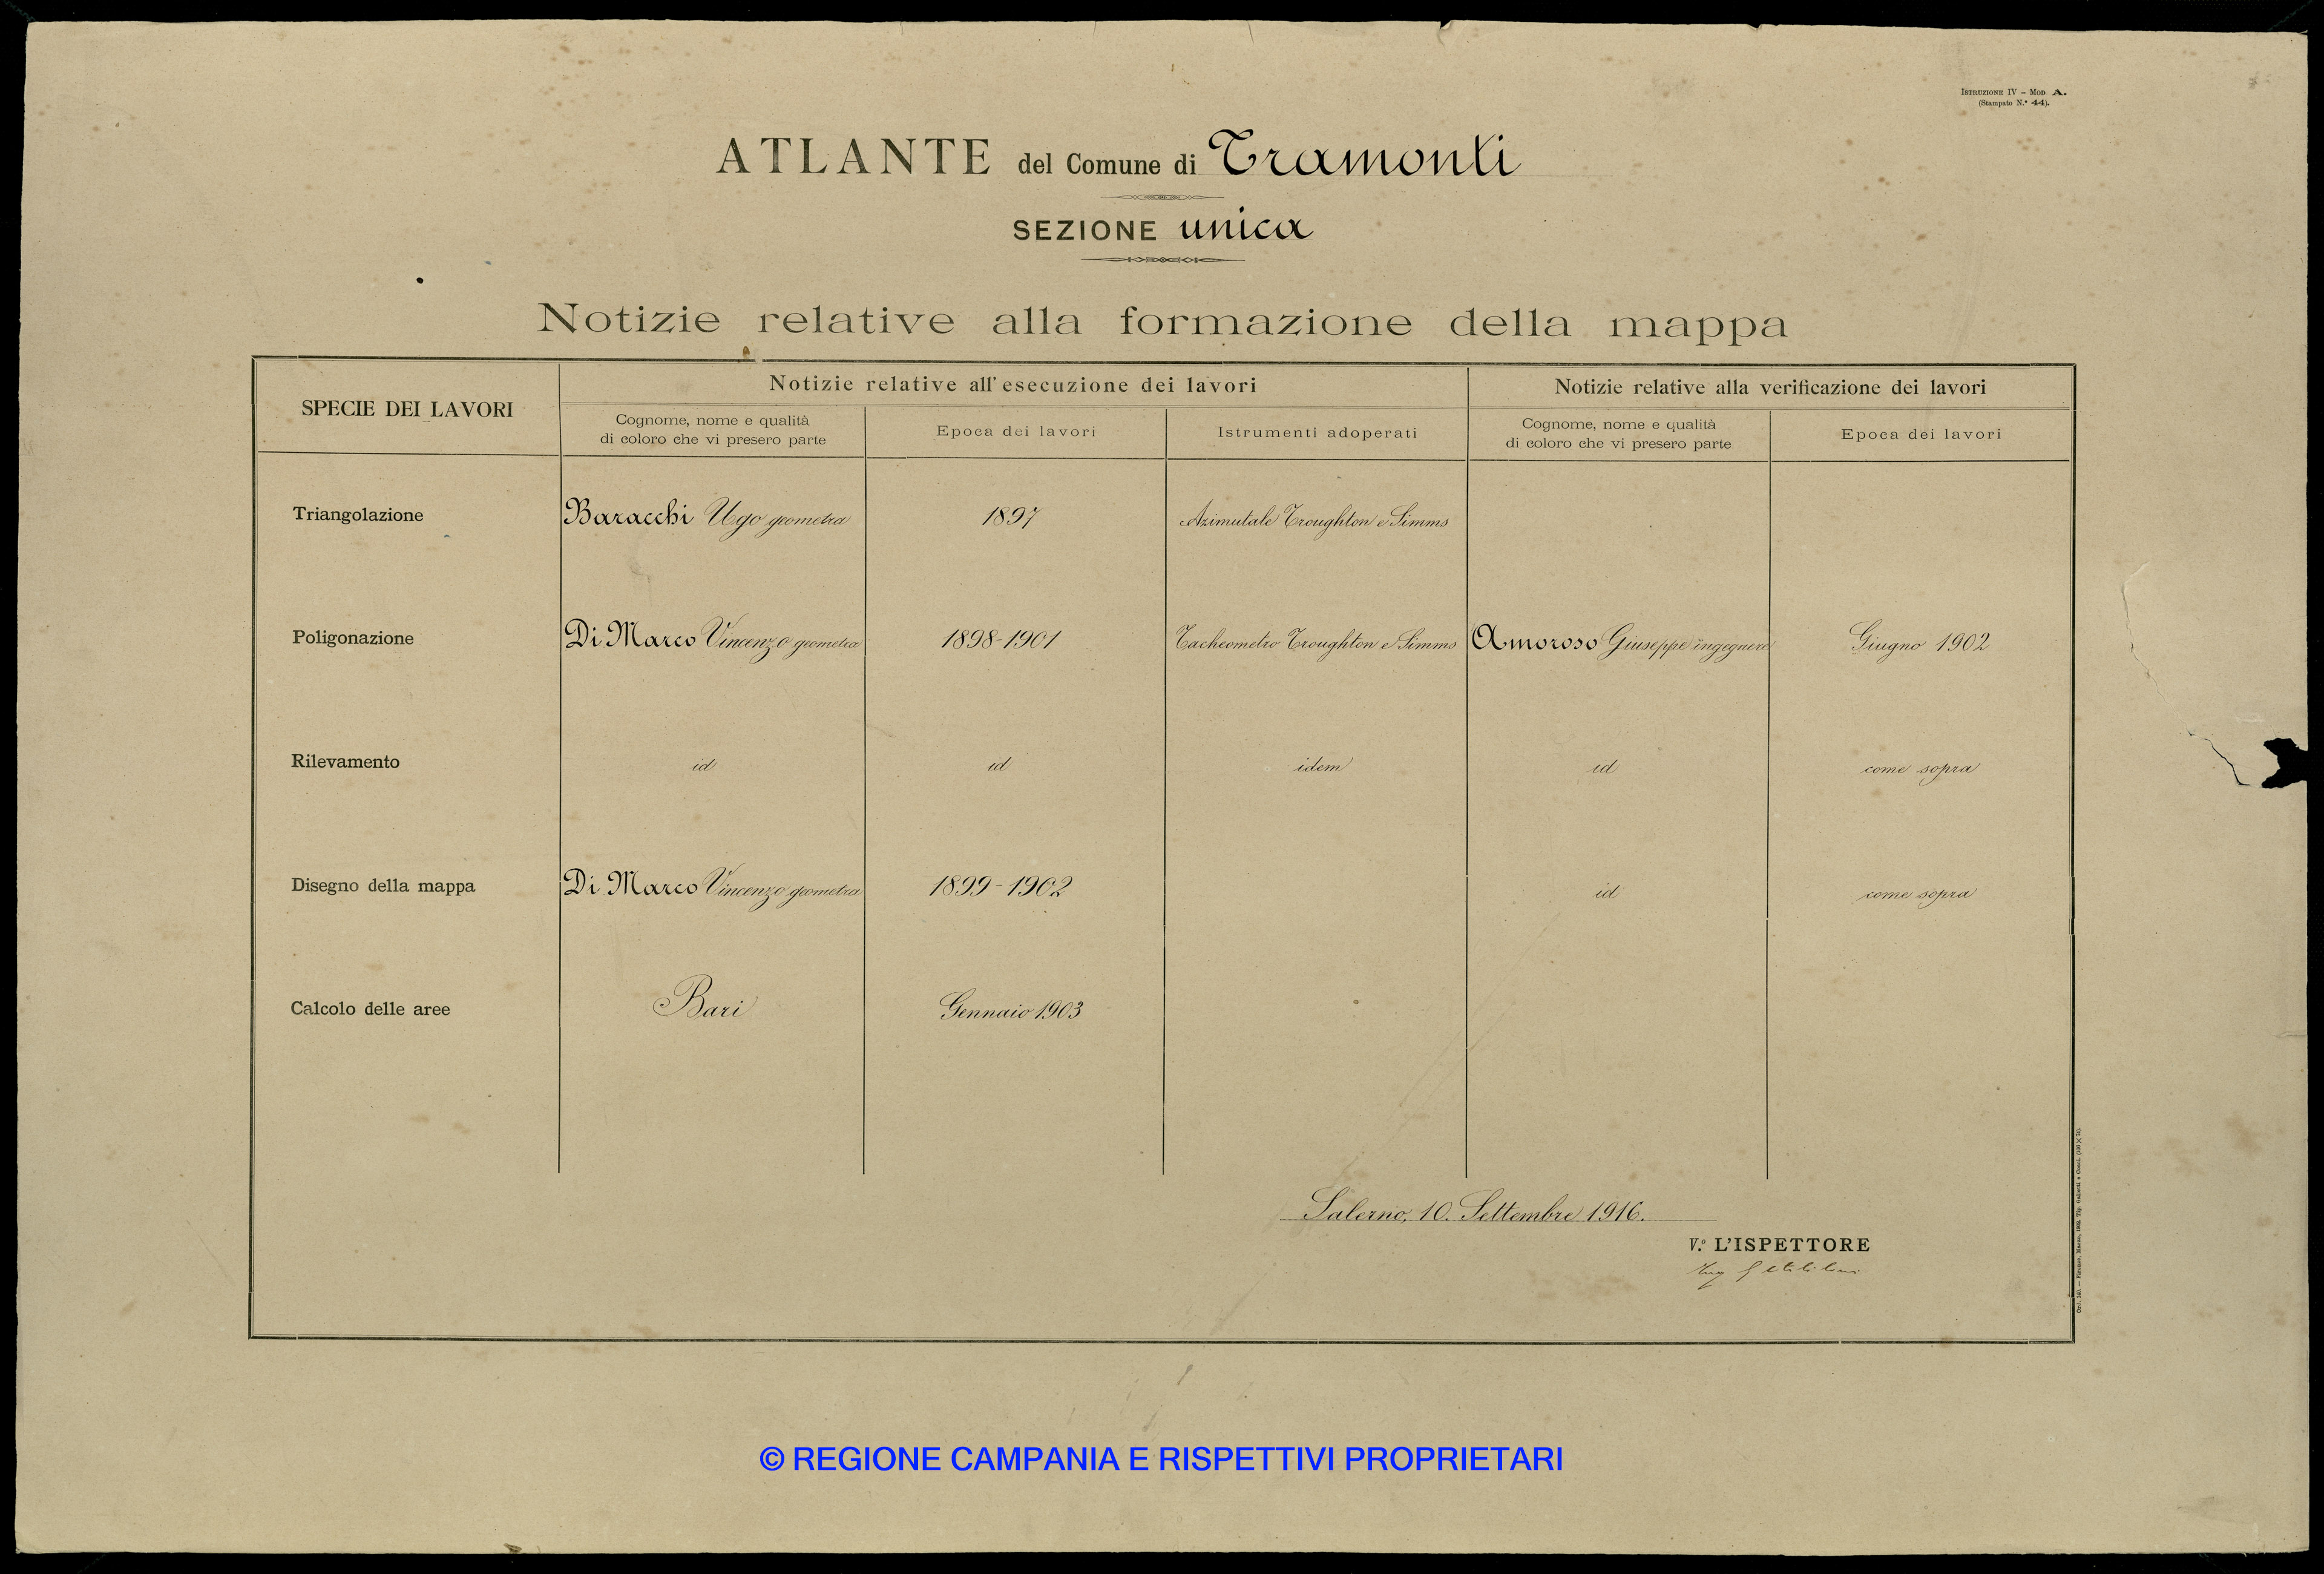 ISTRUZIONE IV – MOD A.
(Stampato N.° 44).
ATLANTE del Comune di Tramonti
SEZIONE unica
Notizie relative alla formazione della mappa
SPECIE DEI LAVORI
Notizie relative all'esecuzione dei lavori
Notizie relative alla verificazione dei lavori
Cognome, nome e qualità
di coloro che vi presero parte
Epoca dei lavori
Istrumenti adoperati
Cognome, nome e qualità
di coloro che vi presero parte
Epoca dei lavori
Triangolazione
Baracchi Ugo geometra
1897
Azimutale Troughton e Simms
Poligonazione
Di Marco Vincenzo geometra
1898-1901
Tacheometro Troughton e Simms
Amoroso Giuseppe ingegnere
Giugno 1902
Rilevamento
id
id
idem
id
come sopra
Disegno della mappa
Di Marco Vincenzo geometra
1899-1902
id
come sopra
Calcolo delle aree
Bari
Gennaio 1903
Salerno, 10. Settembre 1916.
V.° L'ISPETTORE
Ing
© REGIONE CAMPANIA E RISPETTIVI PROPRIETARI